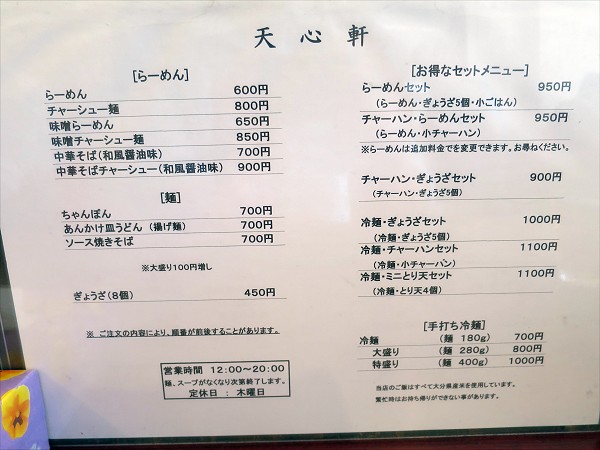 天心軒
[らーめん]
らーめん 600円
チャーシュー麺 800円
味噌らーめん 650円
味噌チャーシュー麺 850円
中華そば(和風醤油味) 700円
中華そばチャーシュー(和風醤油味) 900円
[麺]
ちゃんぽん 700円
あんかけ皿うどん (揚げ麺) 700円
ソース焼きそば 700円
※大盛り100円増し
ぎょうざ(8個) 450円
※ ご注文の内容により、順番が前後することがあります。
営業時間 12:00～20:00
麺、スープがなくなり次第終了します。
定休日 : 木曜日
[お得なセットメニュー]
らーめんセット 950円
(らーめん・ぎょうざ5個・小ごはん)
チャーハン・らーめんセット 950円
(らーめん・小チャーハン)
※らーめんは追加料金でを変更できます。お尋ねください。
チャーハン・ぎょうざセット 900円
(チャーハン・ぎょうざ5個)
冷麺・ぎょうざセット 1000円
(冷麺・ぎょうざ5個)
冷麺・チャーハンセット 1100円
(冷麺・小チャーハン)
冷麺・ミニとり天セット 1100円
(冷麺・とり天4個)
[手打ち冷麺]
冷麺 (麺 180g) 700円
大盛り (麺 280g) 800円
特盛り (麺 400g) 1000円
当店のご飯はすべて大分県産米を使用しています。
繁忙時はお持ち帰りができない事があります。